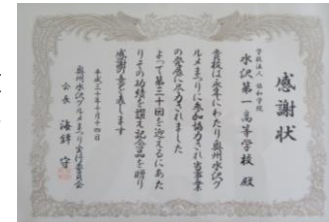 感謝状
学校法人 協和学院
水沢第一高等学校 殿
貴校は永年にわたり奥州水沢グ
ルメまつりに参加協力され当事業
の発展に尽力されました
よって第三十回を迎えるにあた
りその功績を讃え記念品を贈り
感謝の意を表します
平成三十年十月十四日
奥州水沢グルメまつり実行委員会
会長 海鋒 守